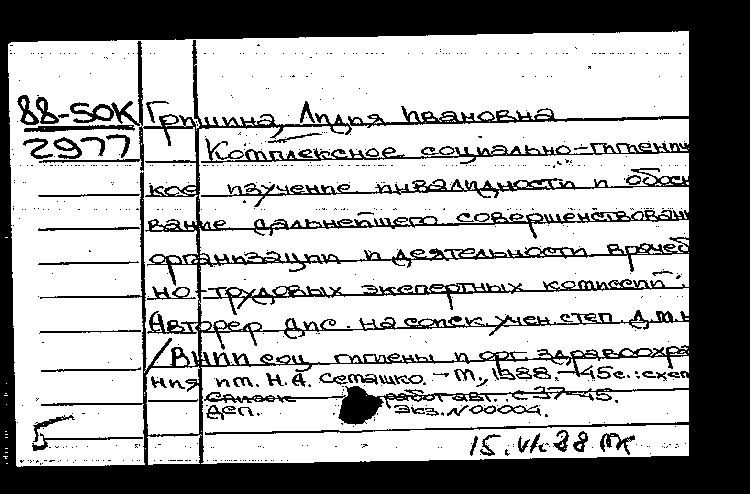 88-50К Гришина, Лидия Ивановна
2977 Комплексное социально-гигенич
кое изучение инвалидности и обосн
вание дальнейшего совершенствовани
организации и деятельности врачеб
но-трудовых экспертных комиссий:
Автореф. дис. на соиск. учен. степ. д.м.н
/ВНИИ соц. гигиены и орг. здравоохра
ния им. Н.А. Семашко. - М., 1988. - 45с.: схем
Список работ авт. с 37-45.
ДСП. Экз. N 00004.
5
15.VI.88 МК